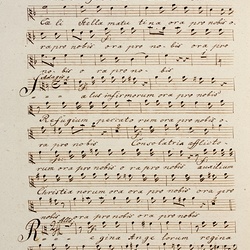 Cæli Stella matutina ora pro nobis o.
ra pro nobis ora pro nobis ora pro
nobis o ra pro no bis
Adagio
Salus infirmorum ora pro nobis
Refugium peccatorum ora pro nobis o.
ra pro nobis Consolatrix afflicto.
rum ora pro nobis ora pro nobis
Christianorum ora ora pro nobis ora pro
nobis ora pro nobis ora pro nobis
Allo
Regina Angelorum regina